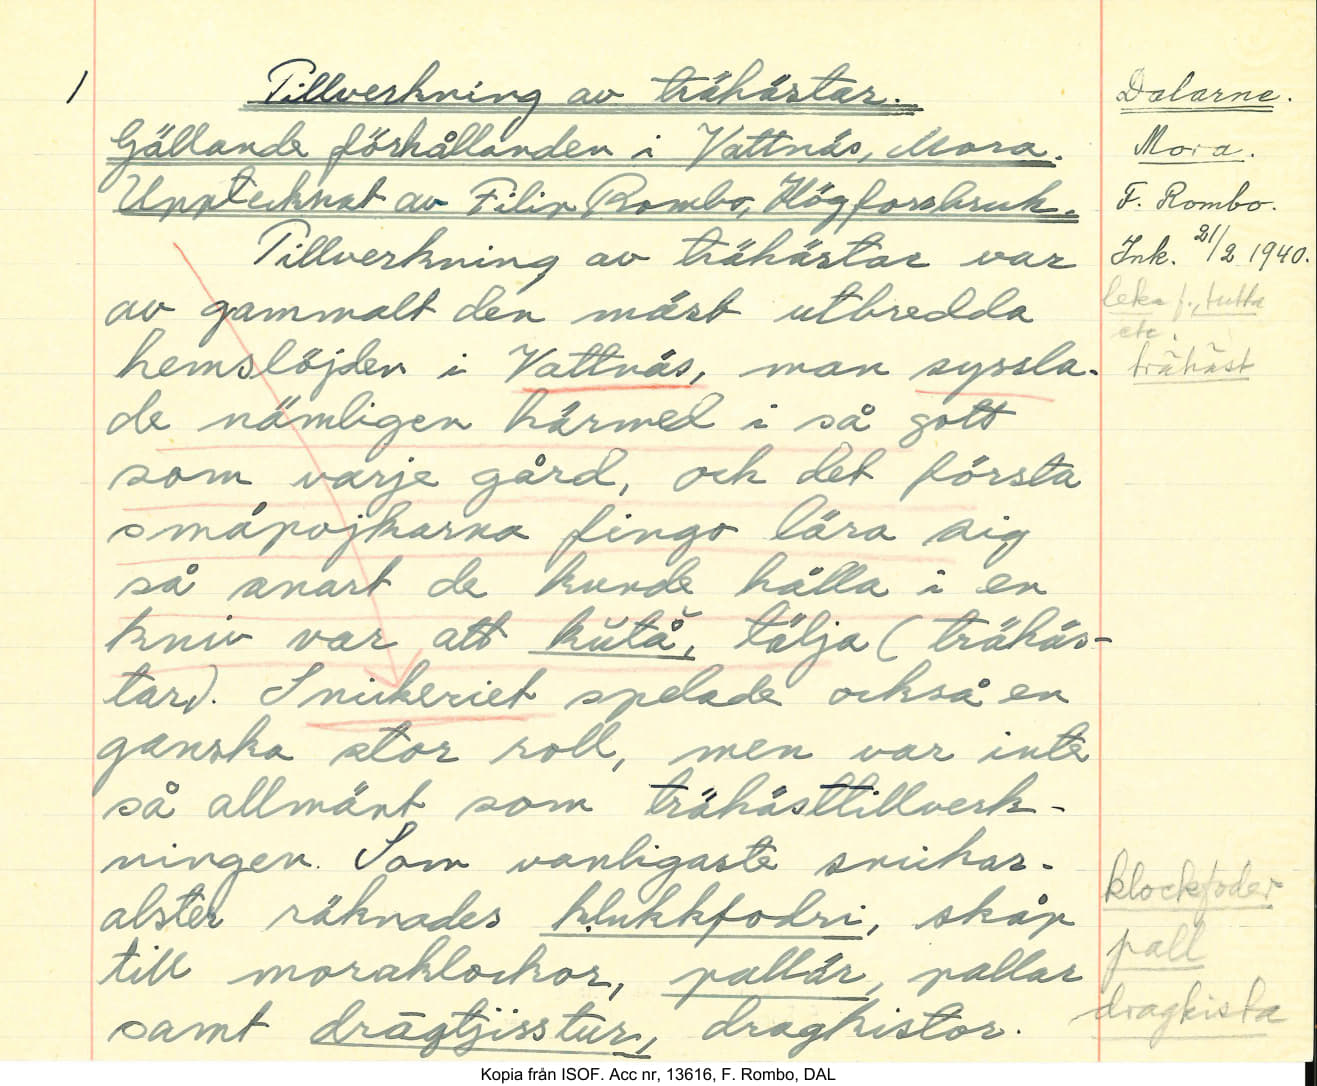 1
Tillverkning av trähästar.
Gällande förhållanden i Vattnäs, Mora.
Upptecknat av Filip Rombo, Högforsbruk.
Tillverkning av trähästar var
av gammalt den mäst utbredda
hemslöjden i Vattnäs, man syssla-
de nämligen härmed i så gott
som varje gård, och det första
småpojkarna fingo lära sig
så snart de kunde hålla i en
kniv var att kŭtå̆, tälja (trähäs-
tar). Snickeriet spelade också en
ganska stor roll, men var inte
så allmänt som trähästtillverk-
ningen. Som vanligaste snickar-
alster räknades klukkfodri, skåp
till moraklockor, pallär, pallar
samt drāgtjisstur, dragkistor.
Dalarne.
Mora.
F. Rombo.
Ink. 21/2 1940.
leka f., tutta
etc.
trähäst
klockfoder
pall
dragkista
Kopia från ISOF. Acc nr, 13616, F. Rombo, DAL